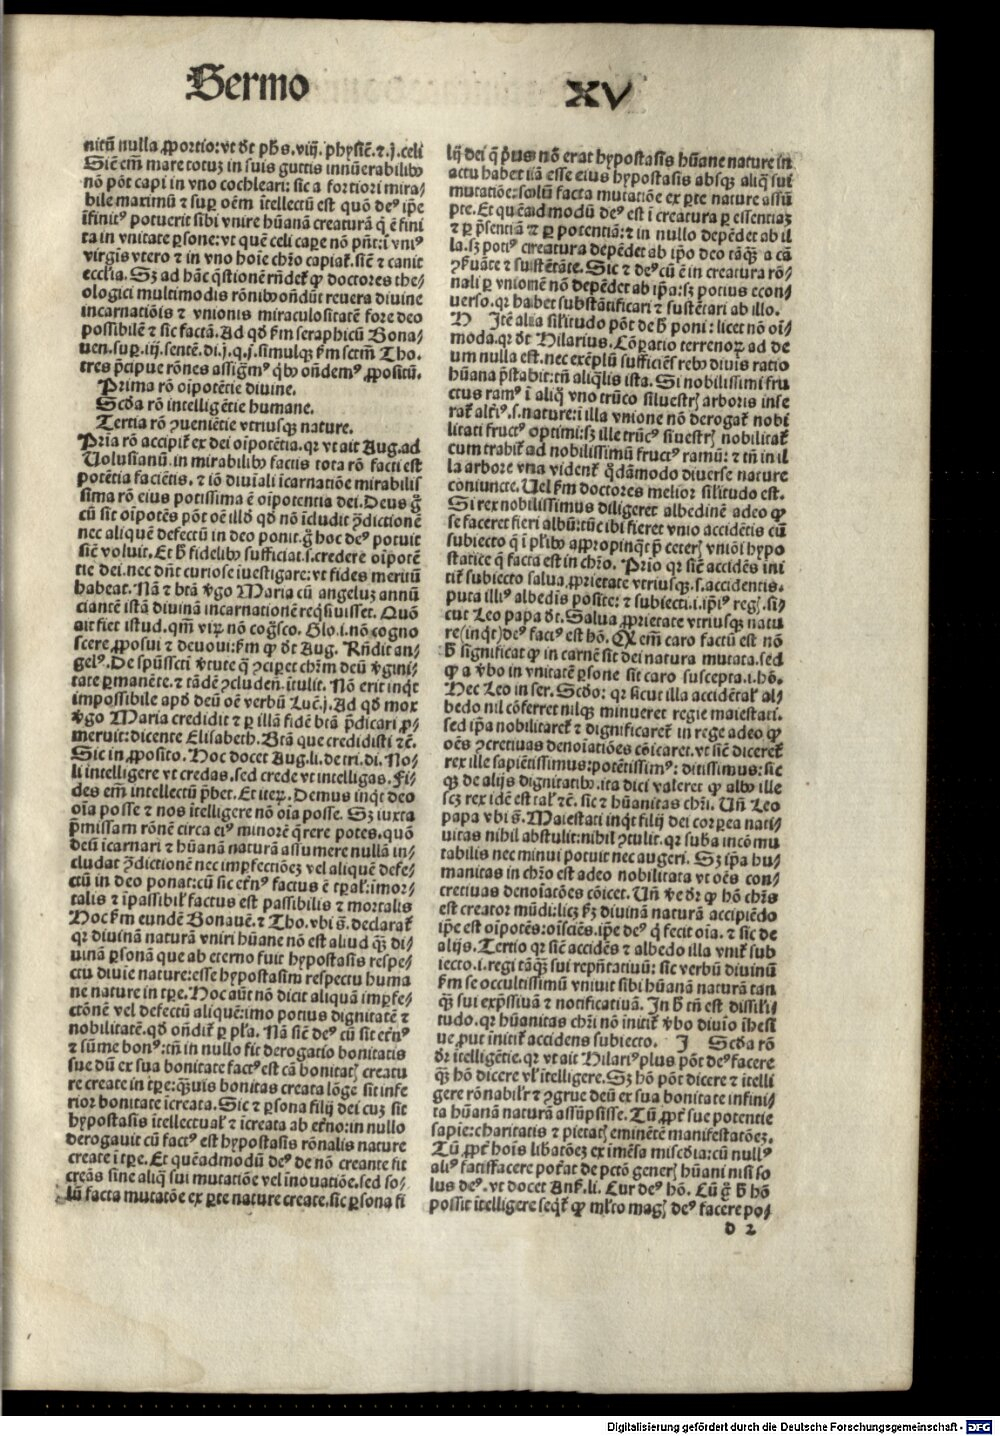 Sermo XV
nitū nulla ꝓportio: vt dt̄ ph̄s .viij. phyſic̄. ⁊ .j. celi
Sic̄ em̄ mare totuꝫ in ſuis guttis innūerabilibꝰ
nō pōt capi in vno cochleari: ſic a fortiori mira⸗
bile maximū ⁊ ſuꝑ oēm ītellectū eſt quō deꝰ ip̄e
īfinitꝰ potuerit ſibi vnire hūanā creaturā q̄ ē fini
ta in vnitate ꝑſone: vt quē celi capere nō pn̄t: ī vniꝰ
virgīs vtero ⁊ in vno hoīe chr̄o capiat᷑. ſic̄ ⁊ canit
eccl̄ia. Sꝫ ad hāc q̄ſtionē rn̄det᷑ ꝙ doctores the⸗
ologici multimodis rōnibꝰ on̄dūt reuera diuine
incarnatiōis ⁊ vnionis miraculoſitatē fore deo
poſſibilē ⁊ ſic factā. Ad qd̄ ẜm ſeraphicū Bona⸗
uen. ſuꝑ .iij. ſentē. di. j. q. j. ſimulqꝫ ẜm ſctm̄ Tho.
tres p̄cipue rōnes aſſigm̄ꝰ qbꝰ on̄demꝰ ꝓpoſitū.
Prima rō oīpotētie diuine.
Scd̄a rō intelligētie humane.
Tertia rō ꝯueniētie vtriuſqꝫ nature.
Pria rō accipit᷑ ex dei oīpotētia. qr vt ait Aug. ad
Voluſianū. in mirabilibꝰ factis tota rō facti eſt
potētia faciētis. ⁊ iō diuīali īcarnatiōe mirabilis
ſima rō eius potiſſima ē oīpotentia dei. Deus g̊
cū ſit oīpotēs pōt oē illd̄ qd̄ nō īcludit ꝯdictionē
nec aliquē defectū in deo ponit. g̊ hoc deꝰ potuit
ſic̄ voluit. Et h̄ fidelibꝰ ſufficiat. ſ. credere oīpotē
tie dei. nec dn̄t curioſe iueſtigare: vt fides meritū
habeat. Nā ⁊ btā v̄go Maria cū angeluꝫ annū
ciantē iſtā diuinā incarnationē reqſiuiſſet. Quō
ait fiet iſtud. qm̄ viꝝ nō cog̊ſco. Glo. i. nō cogno
ſcere ꝓpoſui ⁊ deuoui: ẜm ꝙ dt̄ Aug. Rn̄dit an⸗
gelꝰ. De ſpūſctī v̄tute q̄ ꝯcipet chr̄m deū v̄gini⸗
tate ꝑmanēte. ⁊ tādē ꝯcluden̄. ītulit. Nō erit inqt
impoſſibile apd̄ deū oē verbū Luc̄. j. Ad qd̄ mox
v̄go Maria credidit ⁊ ꝑ illā fidē btā p̄dicari ꝓ⸗
meruit: dicente Eliſabeth. Btā que credidiſti ⁊c̄.
Sic in ꝓpoſito. Hoc docet Aug. li. de tri. di. No⸗
li intelligere vt credas. ſed crede vt intelligas. Fi⸗
des em̄ intellectū p̄bet. Et iteꝝ. Demus inqt deo
oīa poſſe ⁊ nos ītelligere nō oīa poſſe. Sꝫ iuxta
p̄miſſam rōnē circa eiꝰ minorē q̄rere potes. quō
deū icarnari ⁊ hūanā naturā aſſumere nullā in⸗
cludat ꝯdictionē nec imꝑfectiōeꝫ vel aliquē defe⸗
ctū in deo ponat: cū ſic et̄nꝰ factus ē tꝑal᷑: īmor⸗
talis ⁊ īpaſſibil᷑ factus eſt paſſibilis ⁊ mortalis
Hoc ẜm eundē Bonauē. ⁊ Tho. vbi s̄. declarat᷑
qr diuinā naturā vniri hūane nō eſt aliud qꝫ di⸗
uinā ꝑſonā que ab eterno fuit hypoſtaſis reſpe⸗
ctu diuīe nature: eſſe hypoſtaſim reſpectu huma
ne nature in tꝑe. Hoc aūt nō dicit aliquā imꝑfe⸗
ctōnē vel defectū aliquē: imo potius dignitatē ⁊
nobilitatē. qd̄ on̄dit᷑ ꝑ pl̄a. Nā ſic̄ deꝰ cū ſit et̄nꝰ
⁊ ſūme bonꝰ: tn̄ in nullo fit derogatio bonitatis
ſue dū ex ſua bonitate factꝰ eſt cā bonitatꝭ creatu
re create in tꝑe: q̄uis bonitas creata lōge ſit infe
rior bonitate īcreata. Sic ⁊ ꝑſona filij dei cuꝫ ſit
hypoſtaſis ītellectual᷑ ⁊ īcreata ab et̄no: in nullo
derogauit cū factꝰ eſt hypoſtaſis rōnalis nature
create ī tꝑe. Et quēadmodū deꝰ de nō creante fit
creās ſine aliq̄ ſui mutatiōe vel īnouatiōe. ſed ſo⸗
lū facta mutatōe ex ꝑte nature create. ſic ꝑſona fi
lij dei q̄ pͥus nō erat hypoſtaſis hūane nature in
actu habet iā eſſe eius hypoſtaſis abſqꝫ aliq̄ ſui
mutatiōe: ſolū facta mutatiōe ex ꝑte nature aſſū
pte. Et quēadmodū deꝰ eſt ī creatura ꝑ eſſentiaꝫ
⁊ ꝑ p̄ſentiā ⁊ ꝑ potentiā: ⁊ in nullo depēdet ab il
la. ſꝫ potiꝰ creatura depēdet ab ip̄o deo tāq̄ a cā
ꝯẜuāte ⁊ ſuſtētāte. Sic ⁊ deꝰ cū ē in creatura rō⸗
nali ꝑ vnionē nō depēdet ab ip̄a: ſꝫ potius econ⸗
uerſo. qr habet ſubſtātificari ⁊ ſuſtētari ab illo.
H Itē alia ſil̄itudo pōt de h̄ poni: licet nō oī⸗
moda. qr dt̄ Hilarius. Cōꝑatio terrenoꝝ ad de
um nulla eſt. nec exēplū ſufficiēs rebꝰ diuīs ratio
hūana p̄ſtabit: tn̄ aliq̄lis iſta. Si nobiliſſimi fru
ctus ramꝰ ī aliq̄ vno trūco ſilueſtrꝭ arboris inſe
rat᷑ altīꝰ. ſ. nature: ī illa vnione nō derogat᷑ nobi
litati fructꝰ optimi: ſꝫ ille trūcꝰ ſiueſtrꝭ nobilitat᷑
cum trahit᷑ ad nobiliſſimū fructꝰ ramū: ⁊ tn̄ in il
la arbore vna vident᷑ q̇dāmodo diuerſe nature
coniuncte. Uel ẜm doctores melior ſil̄itudo eſt.
Si rex nobiliſſimus diligeret albedinē adeo ꝙ
ſe faceret fieri albū: tūc ibi fieret vnio accidētis cū
ſubiecto q̄ ī pl̄ibꝰ appropinqt p̄ ceterꝭ vniōi hypo
ſtatice q̄ facta eſt in chr̄o. Prio qr ſic̄ accidēs ini
tit᷑ ſubiecto ſalua ꝓprietate vtriuſqꝫ. ſ. accidentis.
puta illiꝰ albedīs poſite: ⁊ ſubiecti. i. ip̄iꝰ regꝭ. ſi⸗
cut Leo papa dt̄. Salua ꝓprietate vtriuſqꝫ natu
re (inqt) deꝰ factꝰ eſt hō. Q em̄ caro factū eſt nō
h̄ ſignificat ꝙ in carnē ſit dei natura mutata. ſed
ꝙ a v̄bo in vnitatē ꝑſone ſit caro ſuſcepta. i. hō.
Hec Leo in ſer. Scd̄o: qr ſicut illa accidētal᷑ al⸗
bedo nil cōferret nilqꝫ minueret regie maieſtati.
ſed ip̄a nobilitaret᷑ ⁊ dignificaret᷑ in rege adeo ꝙ
oēs ꝯcretiuas denoīatiōes cōicaret. vt ſic̄ diceret᷑
rex ille ſapiētiſſimus: potētiſſimꝰ: ditiſſimus: ſic
qꝫ de alijs dignitatibꝰ. ita dici valeret ꝙ albꝰ ille
ſcꝫ rex idē eſt tal᷑ ⁊c̄. ſic ⁊ hūanitas chr̄i. Un̄ Leo
papa vbi s̄. Maieſtati inqt filij dei corꝑea nati⸗
uitas nihil abſtulit: nihil ꝯtulit. qr ſub̄a incōmu
tabilis nec minui potuit nec augeri. Sꝫ ip̄a hu⸗
manitas in chr̄o eſt adeo nobilitata vt oēs con⸗
cretiuas denoīatōes cōicet. Un̄ v̄e dr̄ ꝙ hō chr̄s
eſt creator mūdi: licꝫ ẜꝫ diuinā naturā accipiēdo
ip̄e eſt oīpotēs: oīſciēs. ip̄e deꝰ q̇ fecit oīa. ⁊ ſic de
alijs. Tertio qr ſic̄ accidēs ⁊ albedo illa vnit᷑ ſub
iecto. i. regi tāqꝫ̄ ſui repn̄tatiuū: ſic verbū diuinū
ẜm ſe occultiſſimū vniuit ſibi hūanā naturā tan
qꝫ̄ ſui exp̄ſſiuā ⁊ notificatiuā. In h̄ tn̄ eſt diſſil̄i⸗
tudo. qr hūanitas chr̄i nō initit᷑ v̄bo diuīo īheſi
ue. put īnitit᷑ accidens ſubiecto. I Scd̄a rō
dr̄ ītelligētie. qr vt ait Hilariꝰ plus pōt deꝰ facere
qꝫ̄ hō dicere vl̓ ītelligere. Sꝫ hō pōt dicere ⁊ itelli
gere rōnabil̓r ⁊ ꝯgrue deū ex ſua bonitate infini⸗
ta hūanā naturā aſſūpſiſſe. Tū ꝓpt̄ ſue potentie
ſapie: charitatis ⁊ pietatꝭ eminētē manifeſtatōeꝫ.
Tū ꝓpt̄ hoīs lib̄atōeꝫ ex imēſa miſcd̄ia: cū nullꝰ
aliꝰ ſatiſfacere poſ̄at de pctō generꝭ hūani niſi ſo
lus deꝰ. vt docet Anſ. li. Cur deꝰ hō. Cū g̊ h̄ hō
poſſit ītelligere ſeqt᷑ ꝙ ml̄to magꝭ deꝰ facere po⸗
d 2
Digitalisierung gefördert durch die Deutsche Forschungsgemeinschaft - DFG